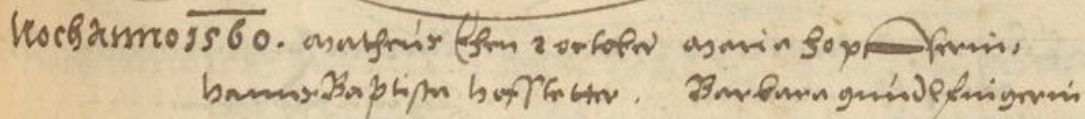 Noch Anno 1560. Matheus Ehen 2 october Maria hop
hanns Baptista hofstetter. Barbara gundelfingerin